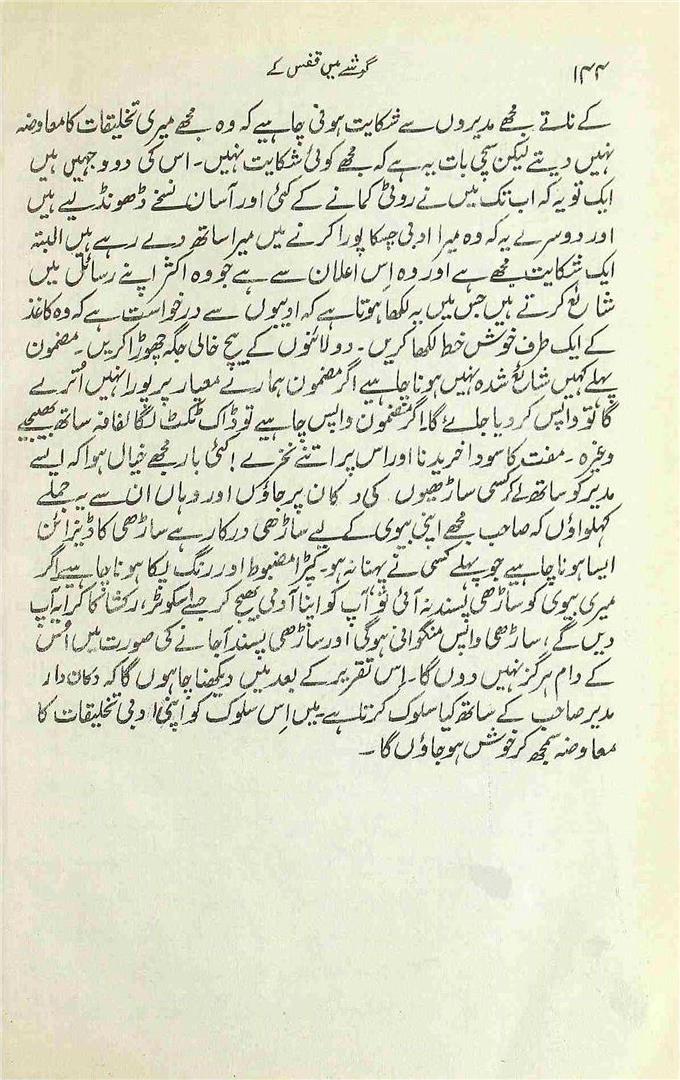 ۱۴۴
گوشے میں قفس کے
کے ناتے مجھے مدیروں سے شکایت ہونی چاہیے کہ وہ مجھے میری تخلیقات کا معاوضہ
نہیں دیتے لیکن سچی بات یہ ہے کہ مجھے کوئی شکایت نہیں۔ اس کی دو وجہیں ہیں
ایک تو یہ کہ اب تک میں نے روٹی کمانے کے کئی اور آسان نسخے ڈھونڈ لیے ہیں
اور دوسرے یہ کہ وہ میرا ادبی چسکا پورا کرنے میں میرا ساتھ دے رہے ہیں البتہ
ایک شکایت مجھے ہے اور وہ اِس اعلان سے ہے جو وہ اکثر اپنے رسائل میں
شائع کرتے ہیں جس میں یہ لکھا ہوتا ہے کہ ادیبوں سے درخواست ہے کہ وہ کاغذ
کے ایک طرف خوش خط لکھا کریں۔ دو لائنوں کے بیچ خالی جگہ چھوڑا کریں۔ مضمون
پہلے کہیں شائع شدہ نہیں ہونا چاہیے اگر مضمون ہمارے معیار پر پورا نہیں اُترے
گا تو واپس کر دیا جائے گا۔ اگر مضمون واپس چاہیے تو ڈاک ٹکٹ لگا لفافہ ساتھ بھیجیے
وغیرہ۔ مفت کا سودا خریدنا اور اس پر اتنے نخرے! کئی بار مجھے خیال ہوا کہ ایسے
مدیر کو ساتھ لے کر کسی ساڑھیوں کی دکان پر جاؤں اور وہاں ان سے یہ جملے
کہلواؤں کہ صاحب مجھے اپنی بیوی کے لیے ساڑھی درکار ہے ساڑھی کا ڈیزائن
ایسا ہونا چاہیے جو پہلے کسی نے پہنا نہ ہو۔ کپڑا مضبوط اور رنگ پکا ہونا چاہیے اگر
میری بیوی کو ساڑھی پسند نہ آئی تو آپ کو اپنا آدمی بھیج کر جسے اسکوٹر، رکشا کا کرایہ آپ
دیں گے، ساڑھی واپس منگوانی ہوگی اور ساڑھی پسند آ جانے کی صورت میں اُس
کے دام ہرگز نہیں دوں گا۔ اس تقریر کے بعد میں دیکھنا چاہوں گا کہ دکان دار
مدیر صاحب کے ساتھ کیا سلوک کرتا ہے۔ میں اِس سلوک کو اپنی ادبی تخلیقات کا
معاوضہ سمجھ کر خوش ہو جاؤں گا۔